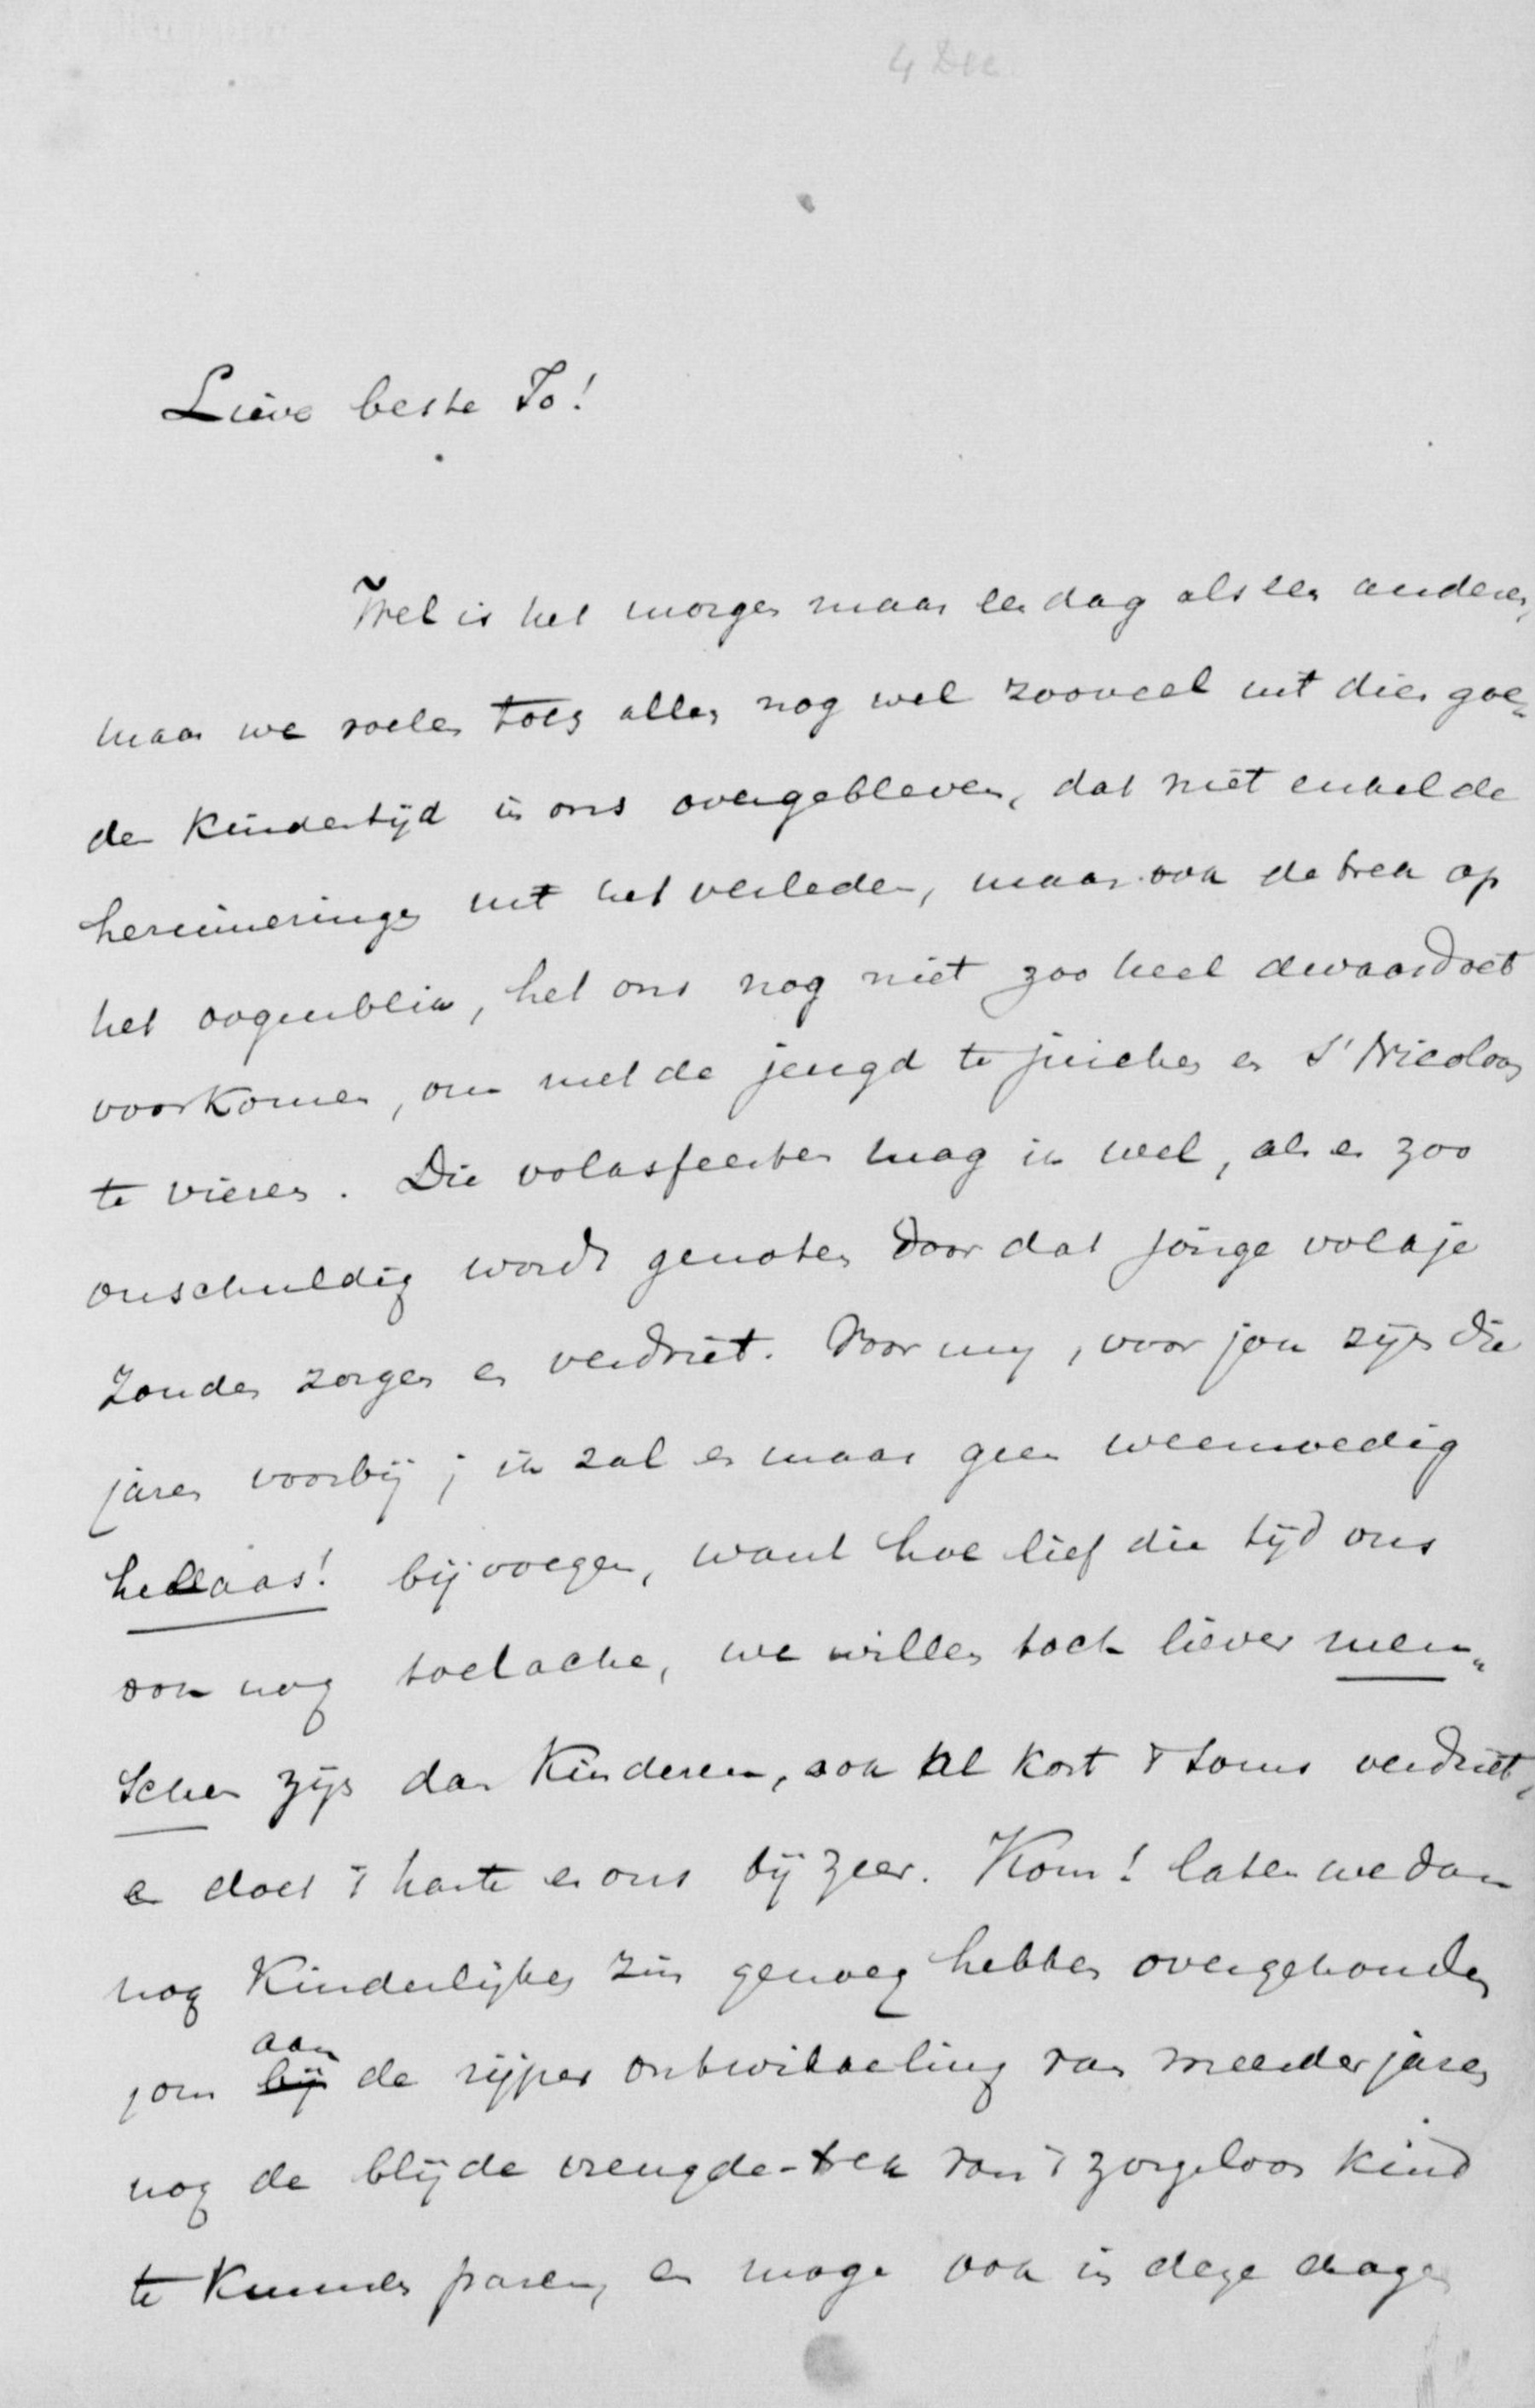 4 Dec.
Lieve beste To!
Wel is het morgen maar een dag als een andere,
maar we voelen toch allen nog wel zooveel uit dien goe„
den kindertijd in ons overgebleven, dat niet enkel de
herinneringen uit het verleden, maar ook de trek op
het oogenblik, het ons nog niet zoo heel dwaas doet
voorkomen, om met de jeugd te juichen en St Nicolaas
te vieren. Die volksfeesten mag ik wel, als er zoo
onschuldig wordt genoten door dat jonge volkje
zonder zorgen en verdriet. Voor mij, voor jou zijn die
jaren voorbij; ik zal er maar geen weemoedig
helaas! bijvoegen, want hoe lief die tijd ons
ook nog toelache, we willen toch liever men„
schen zijn dan kinderen, ook al kost 't soms verdriet,
en doet 't harte er ons bij zeer. Kom! laten we dan
nog kinderlijken zin genoeg hebben overgehouden
om bij aan de rijper ontwikkeling van meerder jaren
nog de blijde vreugde-trek van 't zorgeloos kind
te kunnen paren, en moge ook in deze dagen